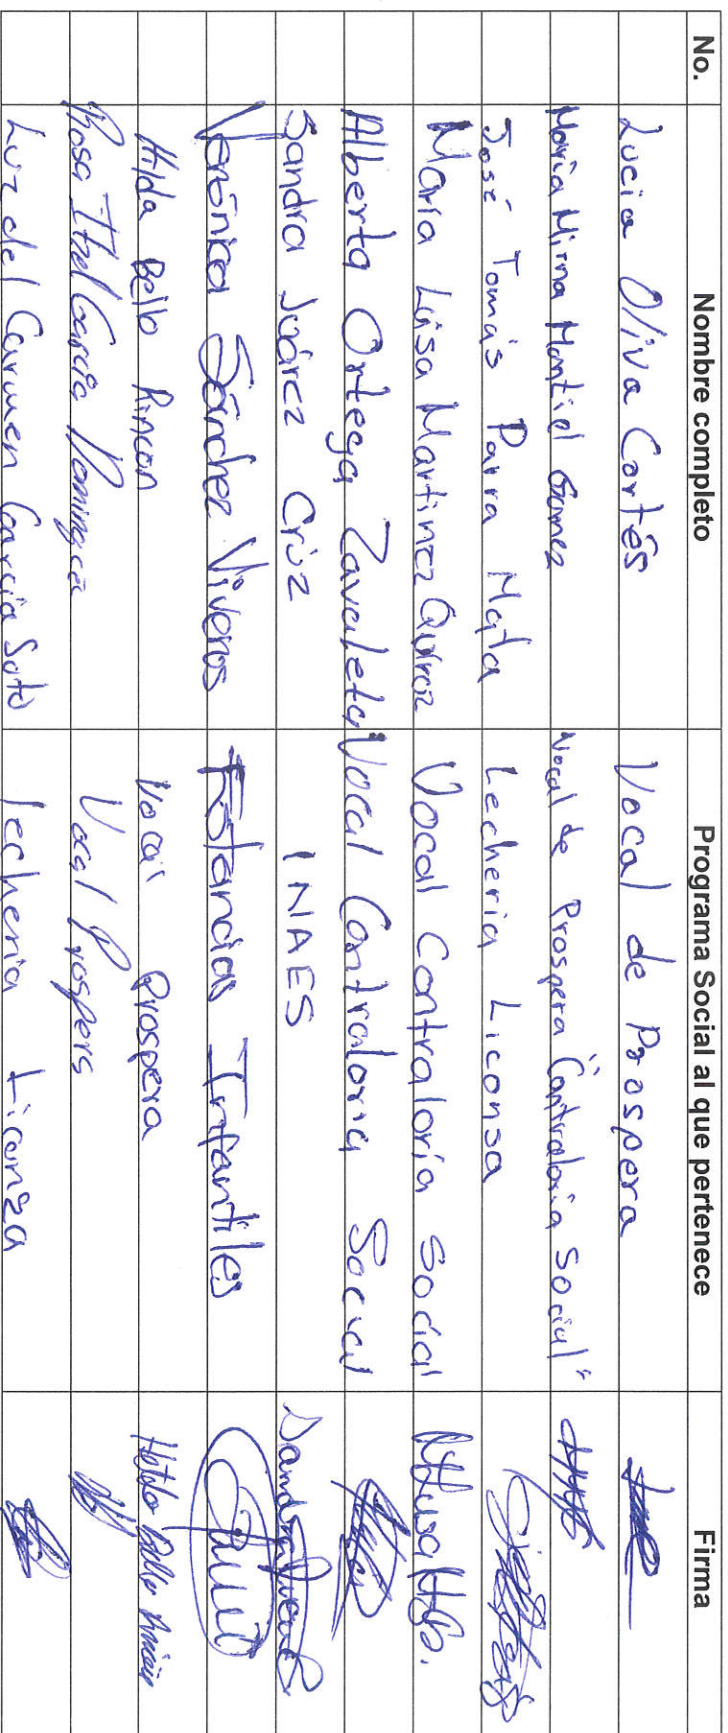 No. Nombre completo Programa Social al que pertenece Firma
Lucia Oliva Cortés Vocal de Prospera
María Mirna Montiel Gomez Vocal de Prospera "Contraloria Social"
José Tomás Parra Mata Lecheria Liconsa
María Luisa Martinez Quiroz Vocal Contraloría Social
Alberta Ortega Zavaleta Vocal Contraloria Social
Sandra Joárez Crúz INAES
Verónica Sánchez Viveros Estancias Infantiles
Hilda Bello Rincon Vocal Prospera Hilda Bello Rincón
Rosa Itzel García Dominguez Vocal Prospers
Luz del Carmen García Soto lecheria Liconza